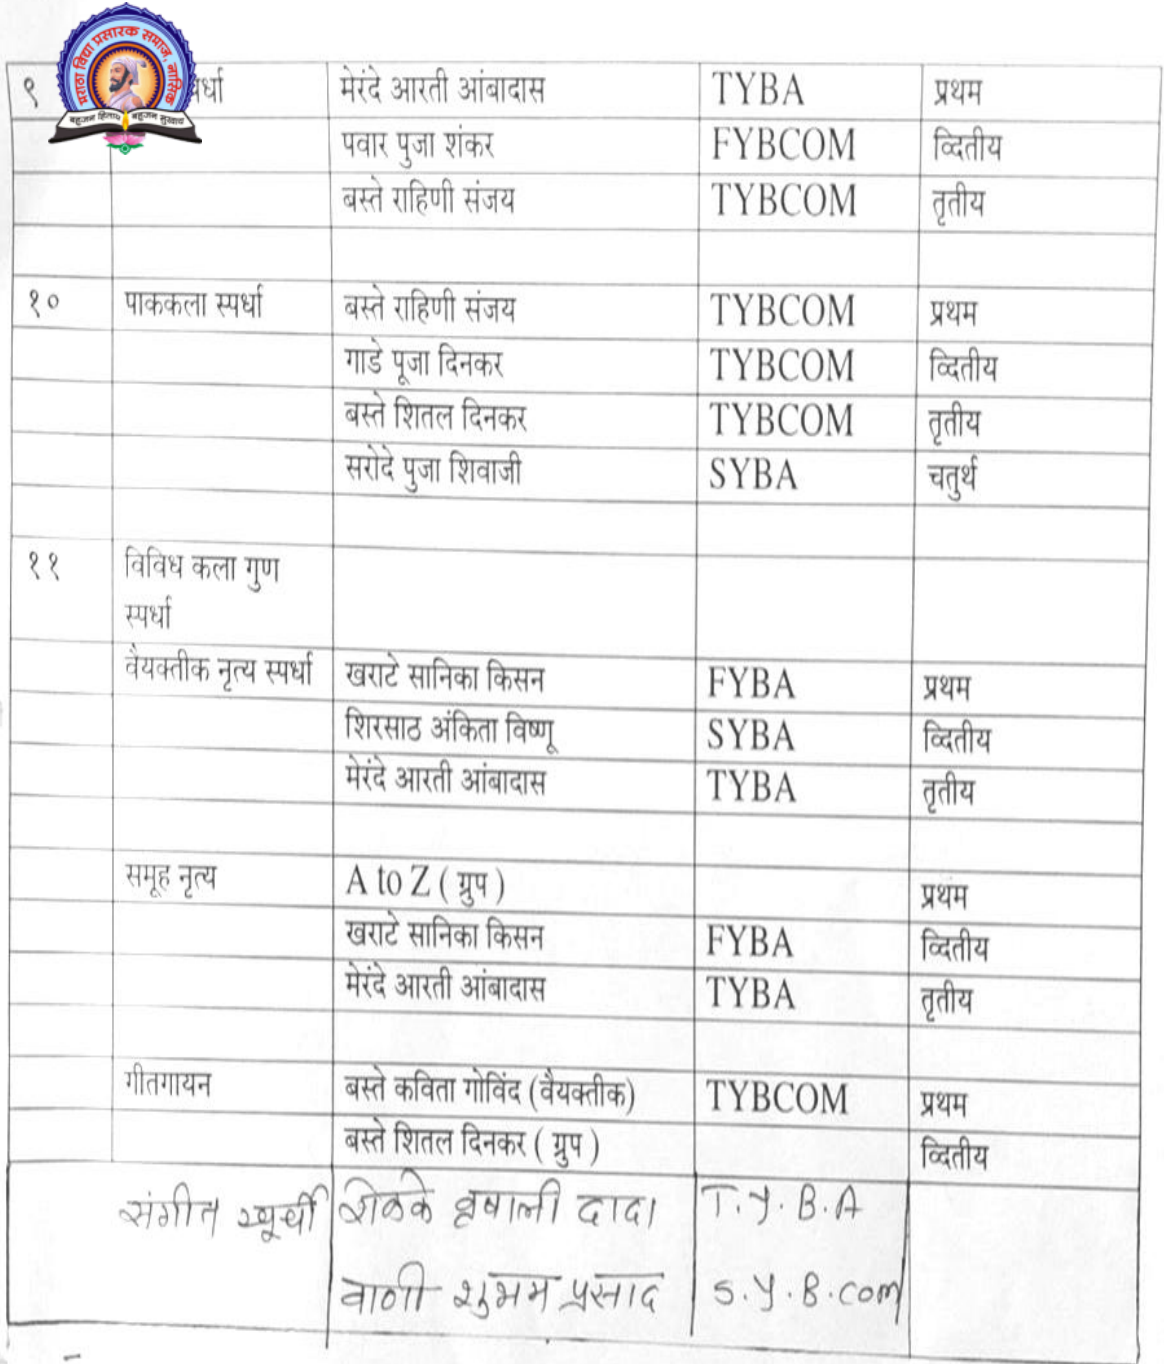 मराठा विद्या प्रसारक समाज, नाशिक
बहुजन हिताय बहुजन सुखाय
९ र्धा मेरंदे आरती आंबादास TYBA प्रथम
पवार पुजा शंकर FYBCOM व्दितीय
बस्ते राहिणी संजय TYBCOM तृतीय
१० पाककला स्पर्धा बस्ते राहिणी संजय TYBCOM प्रथम
गाडे पूजा दिनकर TYBCOM व्दितीय
बस्ते शितल दिनकर TYBCOM तृतीय
सरोदे पुजा शिवाजी SYBA चतुर्थ
११ विविध कला गुण
स्पर्धा
वैयक्तीक नृत्य स्पर्धा खराटे सानिका किसन FYBA प्रथम
शिरसाठ अंकिता विष्णू SYBA व्दितीय
मेरंदे आरती आंबादास TYBA तृतीय
समूह नृत्य A to Z ( ग्रुप ) प्रथम
खराटे सानिका किसन FYBA व्दितीय
मेरंदे आरती आंबादास TYBA तृतीय
गीतगायन बस्ते कविता गोविंद (वैयक्तीक) TYBCOM प्रथम
बस्ते शितल दिनकर ( ग्रुप ) व्दितीय
संगीत खूर्ची शेळके दादा T.Y.B.A
वाणी शुभम प्रसाद S.Y.B.com